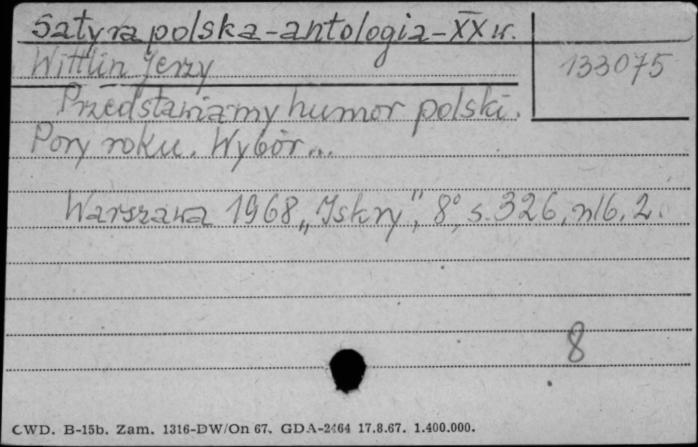 Satyra polska-antologia-XX w.
Wittlin Jerzy
133075
Przedstawiamy humor polski.
Pory roku. Wybór...
Warszawa 1968, „Iskry", 8°, s. 326, nlb. 2.
8
CWD. B-15b. Zam. 1316-DW/On 67. GDA-2464 17.8.67. 1.400.000.